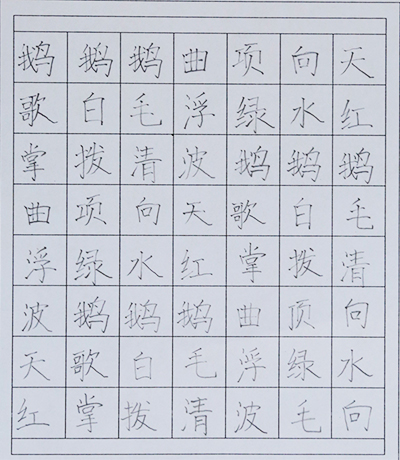 鹅鹅鹅曲项向天
歌白毛浮绿水红
掌拨清波鹅鹅鹅
曲项向天歌白毛
浮绿水红掌拨清
波鹅鹅鹅曲项向
天歌白毛浮绿水
红掌拨清波毛向